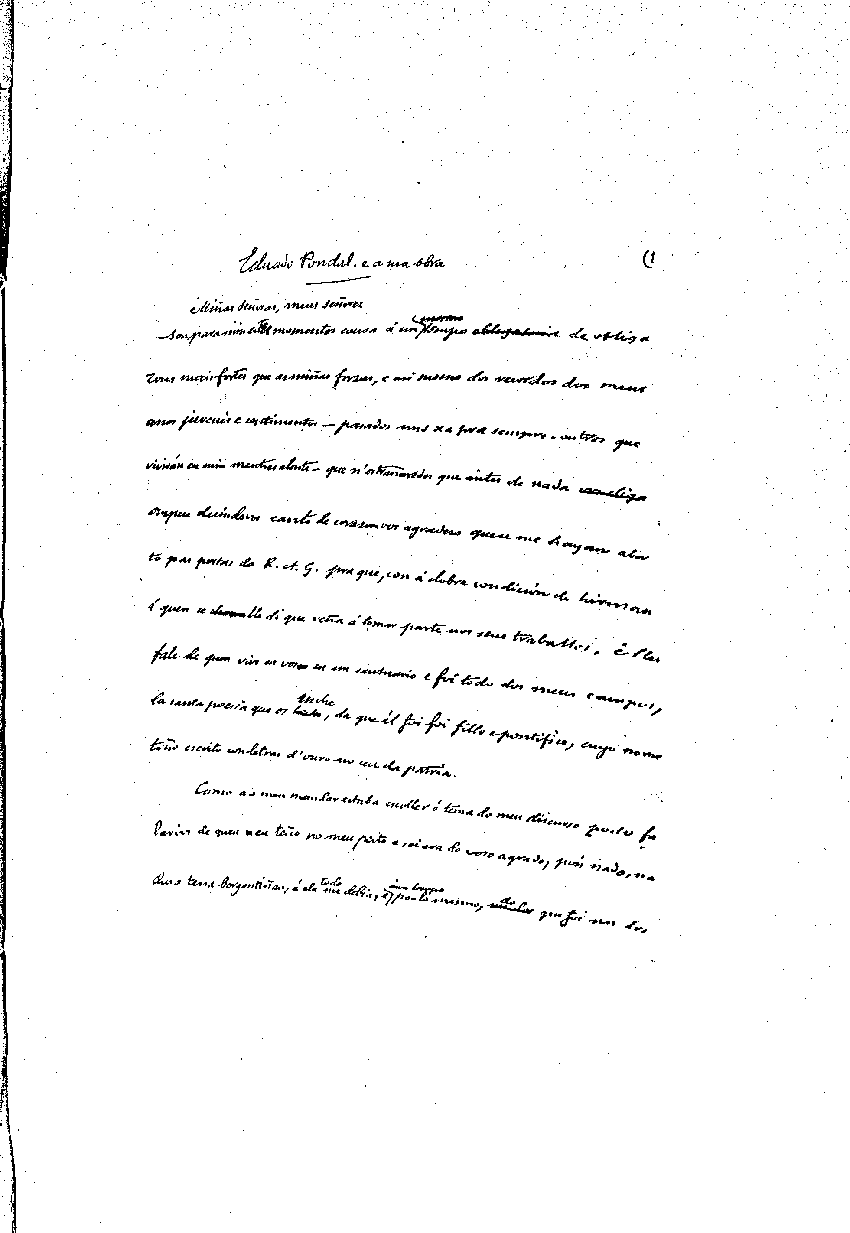 Eduardo Pondal e a sua obra (1
Miñas señoras, meus señores
Son para min estes momentos causa á un tempo de obliga
zons mais fortes que as miñas forzas, e así mesmo dos recordos dos meus
anos juveniles e sentimentos - pasados uns xa pra sempre, outros que
vivirán en min mentras alente - que n'estrañaredes que antes de nada
empece decindovos canto de corazon vos agradezo que se me haxan aber
to pas portas da R. A. G. pra que, con á dobre condición de
i quen se di que veña á tomar parte nos seus traballos, e lles
fale de quen viu en vos en un santuario e foi todo dos meus campos,
la santa poesía que os , da que él foi foi fillo e pontífice, cuyo nome
teño escrito con letras d'ouro no ceo da patria.
Como ao meu mandar estaba escoller ó tema do meu discurso puden fa
larvos de quen eu teño no meu peito e sei era do voso agrado, pois nado, na
dura terra bergantiñan, á ela todo me debía, e por lo mesmo, que foi un dos